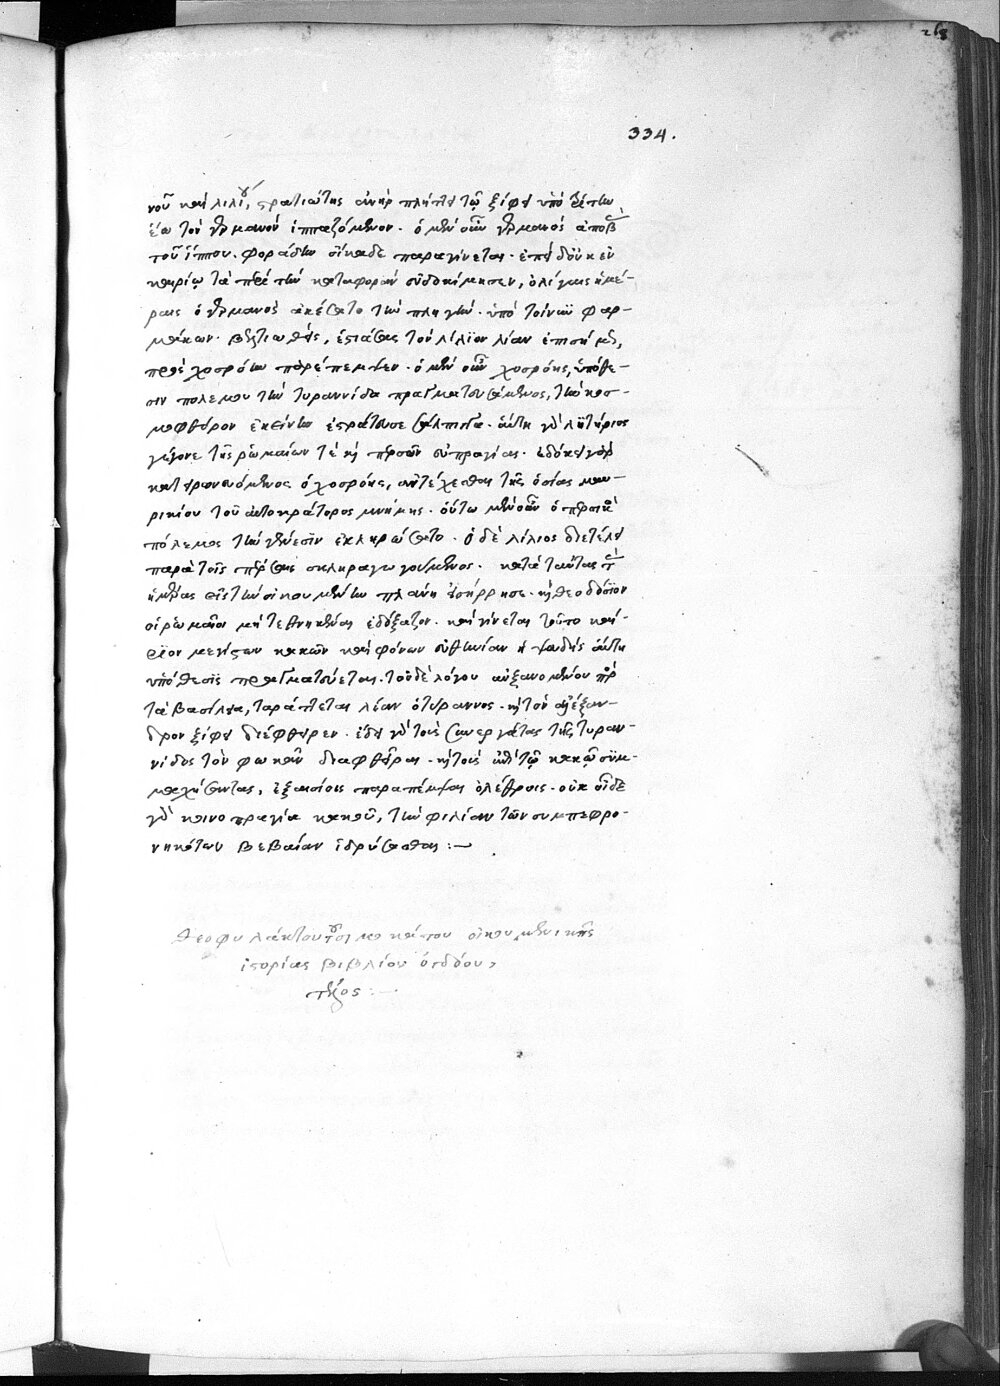 268
334.
νοῦ καὶ λιλίου, στρατιώτης ἀνὴρ πλήττει τῷ ξίφει ὑπὸ
τὸν γερμανὸν ἱππαζόμενον. ὁ μὲν οὖν γερμανὸς ἀποβὰς
τοῦ ἵππου. φοράδην οἴκαδε παραγίνεται. ἐπεὶ δ' οὐκ ἐν
καιρίῳ τὰ περὶ τὴν καταφορὰν εὐδοκίμησεν, ὀλίγαις ἡμέ-
ραις ὁ γερμανὸς ἀκέσατο τὴν πληγήν. ὑπὸ τοίνυν φαρ-
μάκων. βελτιωθεὶς, ἑστιάσας τὸν λίλιον λίαν ἐπισήμως,
πρὸς χοσρόην παρέπεμψεν. ὁ μὲν οὖν χοσρόης, ὑπόθε-
σιν πολέμου τὴν τυραννίδα πραγματευσάμενος, τὴν κοσ-
μοφθόρον ἐκείνην ἐστράτευσε σάλπιγγα. αὕτη γὰρ λυτήριος
γέγονε τῆς ῥωμαίων τε καὶ περσῶν εὐπραγίας. ἐδόκει γὰρ
κατειρωνευόμενος ὁ χοσρόης, ἀντέχεσθαι τῆς ὁσίας μαυ-
ρικίου τοῦ αὐτοκράτορος μνήμης. οὕτω μὲν οὖν ὁ περσικὸς
πόλεμος τὴν γένεσιν ἐκληρώσατο. ὁ δὲ λίλιος διετέλει
παρὰ τοῖς πέρσαις σκληραγωγούμενος. κατὰ ταύτας τὰς
ἡμέρας εἰς τὴν οἰκουμένην πλάνη εἰσήρρησε. καὶ θεοδόσιον
οἱ ῥωμαῖοι μὴ τεθνηκέναι ἐδόξαζον. καὶ γίνεται τοῦτο καί-
ριον μεγίστων κακῶν καὶ φόνων εὐθηνίαν ἡ ψευδὴς αὕτη
ὑπόθεσις πραγματεύεται. τοῦ δὲ λόγου αὐξανομένου περὶ
τὰ βασίλεια, ταράττεται λίαν ὁ τύραννος. καὶ τὸν ἀλέξαν-
δρον ξίφει διέφθειρεν. ἔδει γὰρ τοὺς συνεργάτας τῆς τυραν-
νίδος τὸν φωκᾶν διαφθεῖραι. καὶ τοὺς ἐπὶ τῷ κακῷ συμ-
μαχήσαντας, ἐξαισίοις παραπέμψαι ὀλέθροις. οὐκ οἶδε
γὰρ κοινοπραγία κακοῦ, τὴν φιλίαν τῶν συμπεφρο-
νηκότων βεβαίαν ἱδρύσασθαι :—
θεοφυλάκτου τοῦ σιμοκάτου οἰκουμενικῆς
ἱστορίας βιβλίου ὀγδόου,
τέλος :—